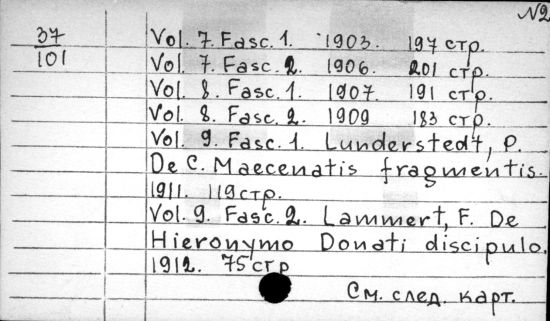 №2
37
101
Vol. 7. Fasc. 1. 1903. 197 стр.
Vol. 7. Fasc. 2. 1906. 201 стр.
Vol. 8. Fasc. 1. 1907. 191 стр.
Vol. 8. Fasc. 2. 1909 183 стр.
Vol. 9. Fasc. 1. Lunderstedt, P.
De C. Maecenatis fragmentis.
1911. 119 стр.
Vol. 9. Fasc. 2. Lammert, F. De
Hieronymo Donati discipulo.
1912. 75 стр
См. след. карт.